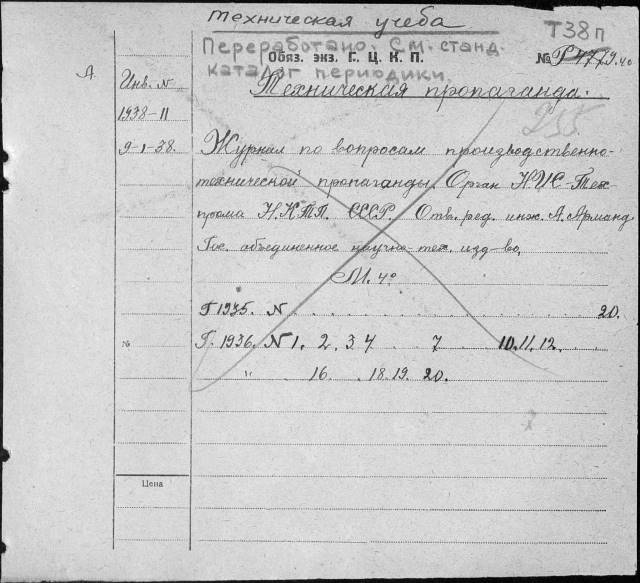 техническая учеба
Т38п
Переработано. См. станд.
Обяз. экз. Г. Ц. К. П.
№ Р4779.40
каталог периодики.
А.
Инв. N
Техническая пропаганда.
1938-11
255.
9-1-38.
Журнал по вопросам производственно-
технической пропаганды. Орган Н.И.С.-Тех-
прома Н.К.Т.П. СССР. Отв. ред. инж. А. Арманд
Гос. объединенное научно-тех. изд-во,
М. 4°
Г 1935. N 20.
№
Г. 1936. N 1. 2. 3. 4 7 10. 11. 12.
" 16. 18. 19. 20.
Цена